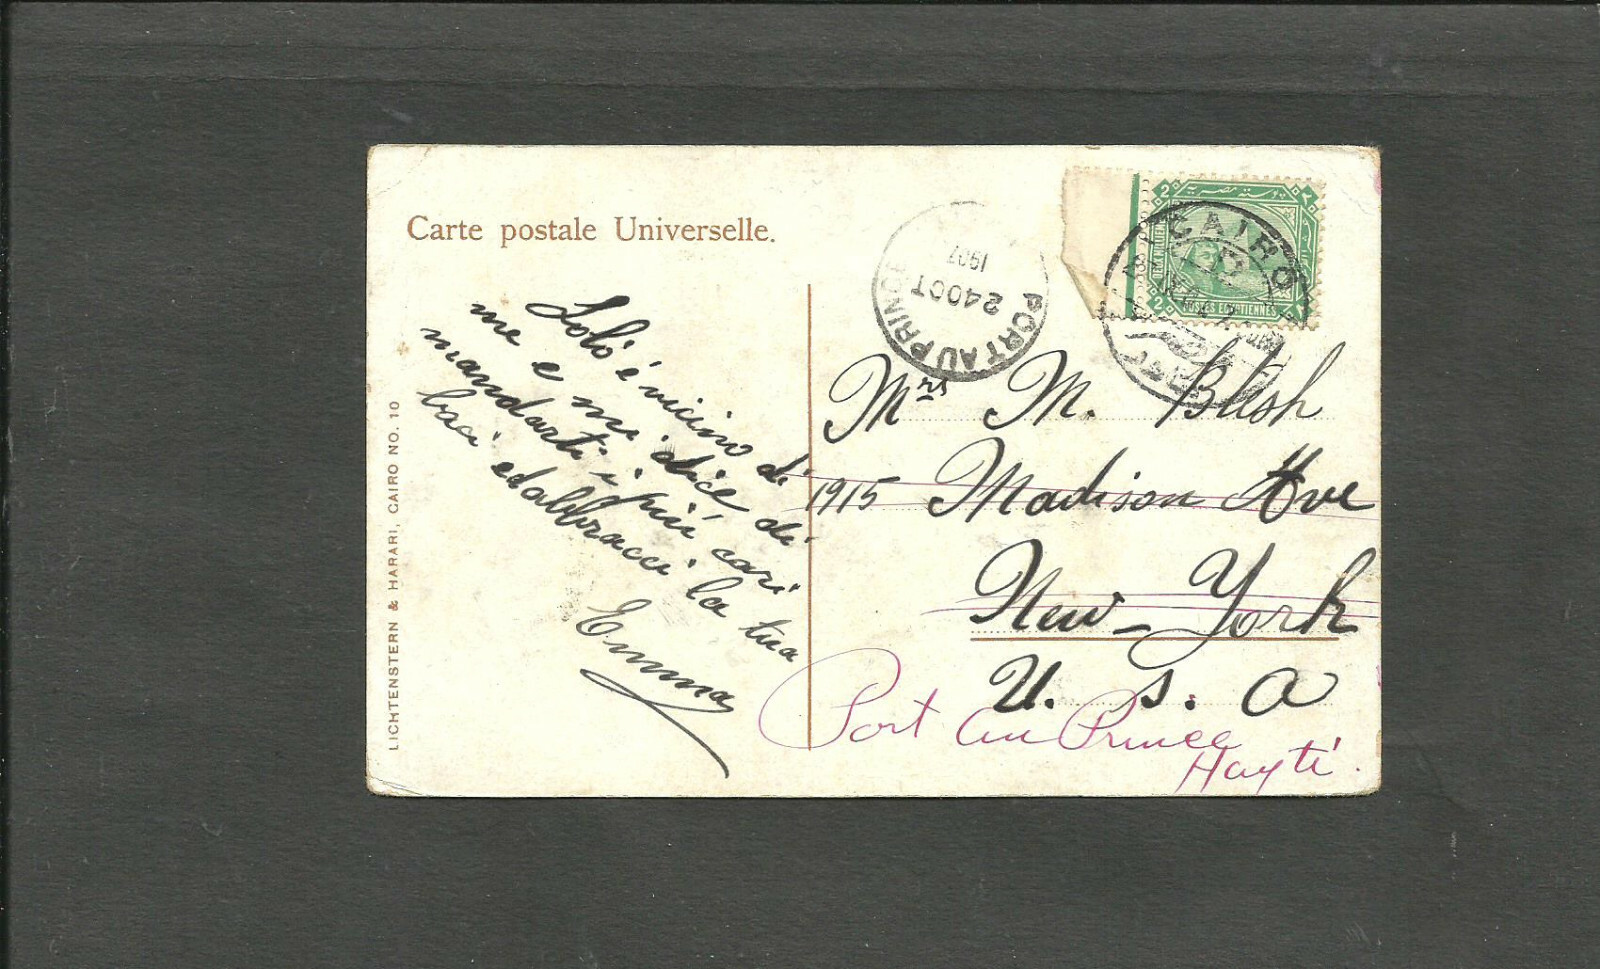 Carte postale Universelle.
LICHTENSTERN & HARARI, CAIRO NO. 10
Lolò è vicino di
me e mi dice di
mandarti i più cari
baci ed abbracci la tua
Emma
PORT AU PRINCE
24 OCT
1907
CAIRO
2
2
POSTES EGYPTIENNES
Mrs M. Blesh
1915 Madison Ave
New-York
U.S.A
Port au Prince
Hayti.